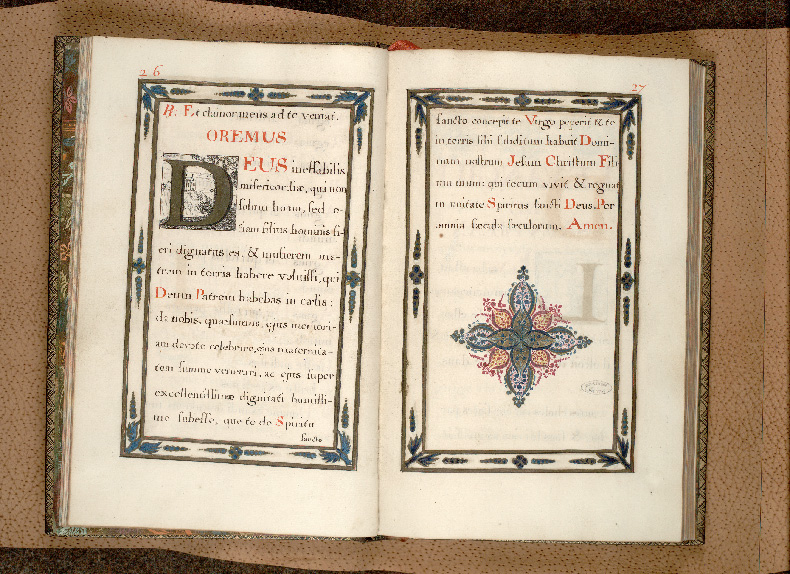 26
R: Et clamor meus ad te veniat.
OREMUS
DEUS ineffabilis
misericordiæ, qui non
solum homo, sed e-
tiam filius hominis fi-
eri dignatus es, & mulierem ma-
trem in terris habere voluisti, qui
Deum Patrem habebas in cælis:
da nobis, quæsumus, ejus memori-
am devote celebrare, ejus maternita-
tem summe venerari, ac ejus super
excellentissimæ dignitati humilli-
me subesse, quæ te de Spiritu
sancto
27
sancto concepit te Virgo peperit & te
in terris sibi subditum habuit Domi-
num nostrum Jesum Christum Fili
um tuum: qui tecum vivit & regnat
in unitate Spiritus sancti Deus. Per
omnia sæcula sæculorum. Amen.